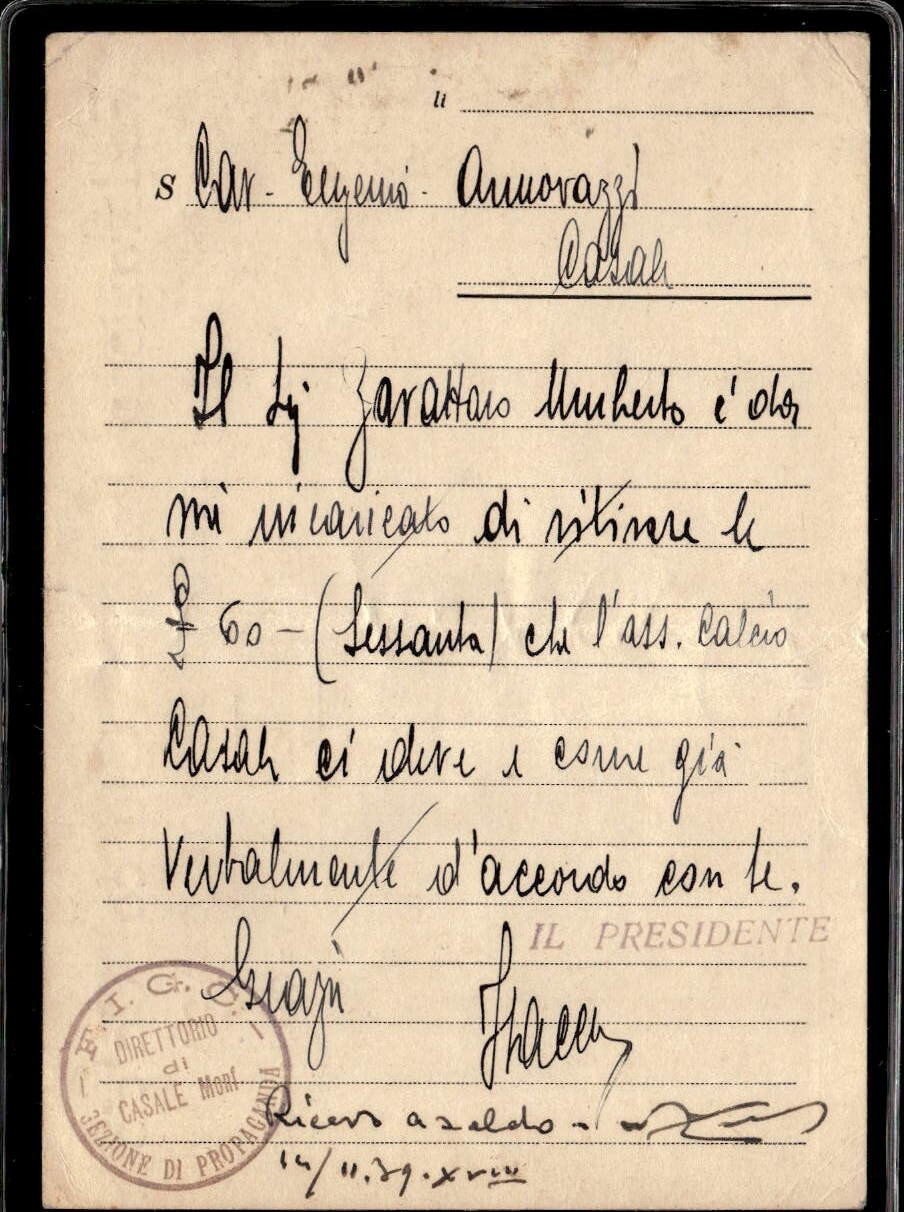 li
S Cav - Eugenio - Annovazzi
Casale
Il Sig Zavattaro Umberto è da
me incaricato di ritirare le
£ 60 - (Sessanta) che l'ass. Calcio
Casale ci deve e come già
verbalmente d'accordo con te.
IL PRESIDENTE
Grazie
F. I. G. C.
DIRETTORIO
di
CASALE Monf
SEZIONE DI PROPAGANDA
Ricevo a saldo -
/11.39.XVIII